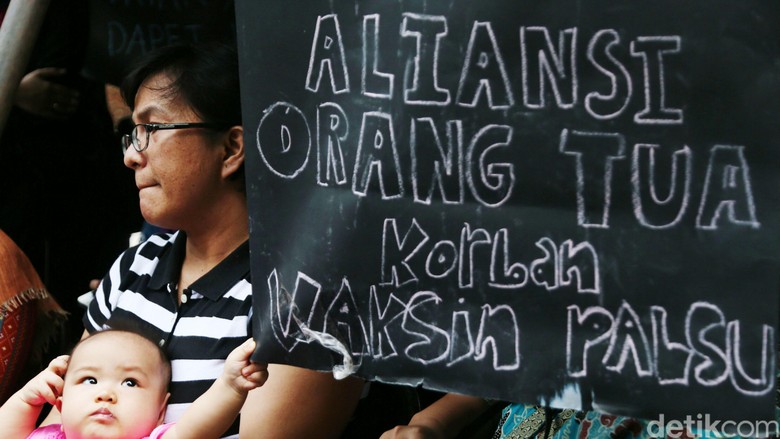 DAPET
ALIANSI
ORANG TUA
KORLAN
VAKSIN PALSU
detikcom